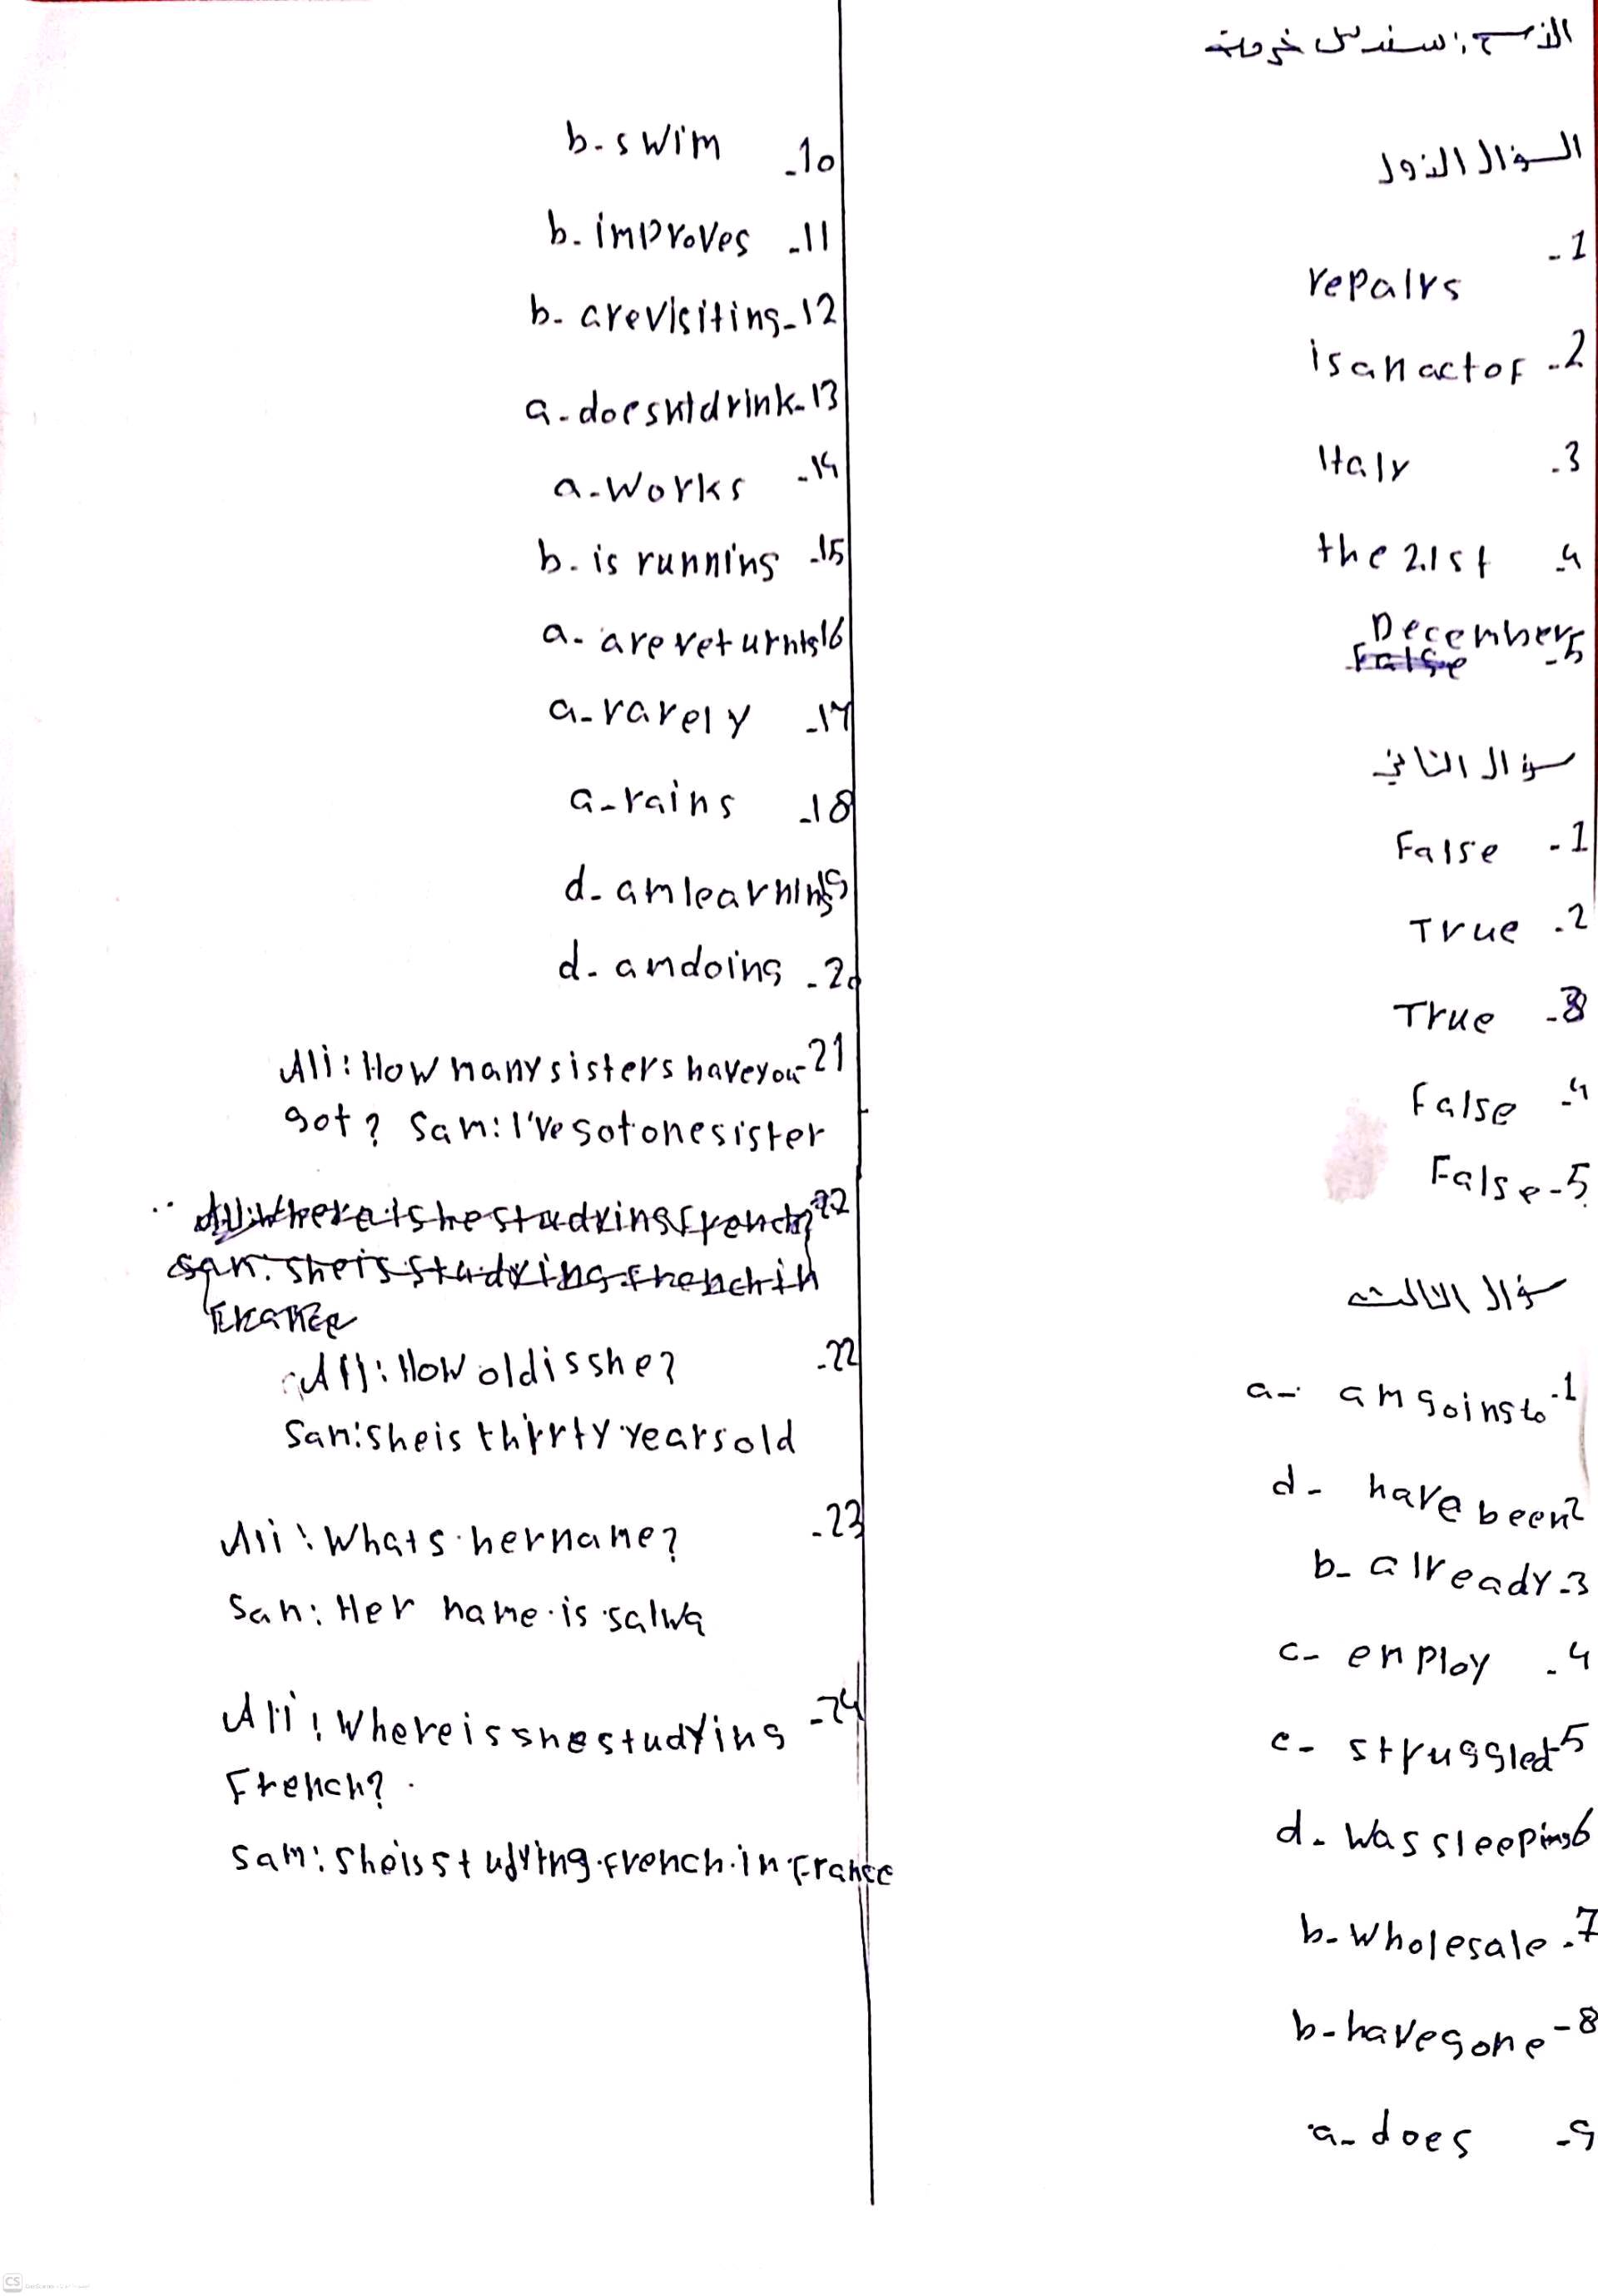 الاسم : سندس خرمة
السؤال الاول
1-
repairs
2- is an actor
3- Italy
4- the 21st
5- December
False
سؤال الثاني
1- False
2- True
3- True
4- False
5- False
سؤال الثالث
1- a- am going to
2- d- have been
3- b- already
4- c- employ
5- c- struggled
6- d- was sleeping
7- b- wholesale
8- b- have gone
9- a- does
10- b- swim
11- b- improves
12- b- are visiting
13- a- doesn't drink
14- a- works
15- b- is running
16- a- are returning
17- a- rarely
18- a- rains
19 d- am learning
20- d- am doing
21- Ali: How many sisters have you
got? Sam: I've got one sister
22 Ali: Where is she studying French?
Sam: She is studying French in
France
22- Ali: How old is she?
Sam: she is thirty years old
23- Ali: Whats her name?
Sam: Her name is salwa
24- Ali: Where is she studying
French?
Sam: She is studying French in France
CS